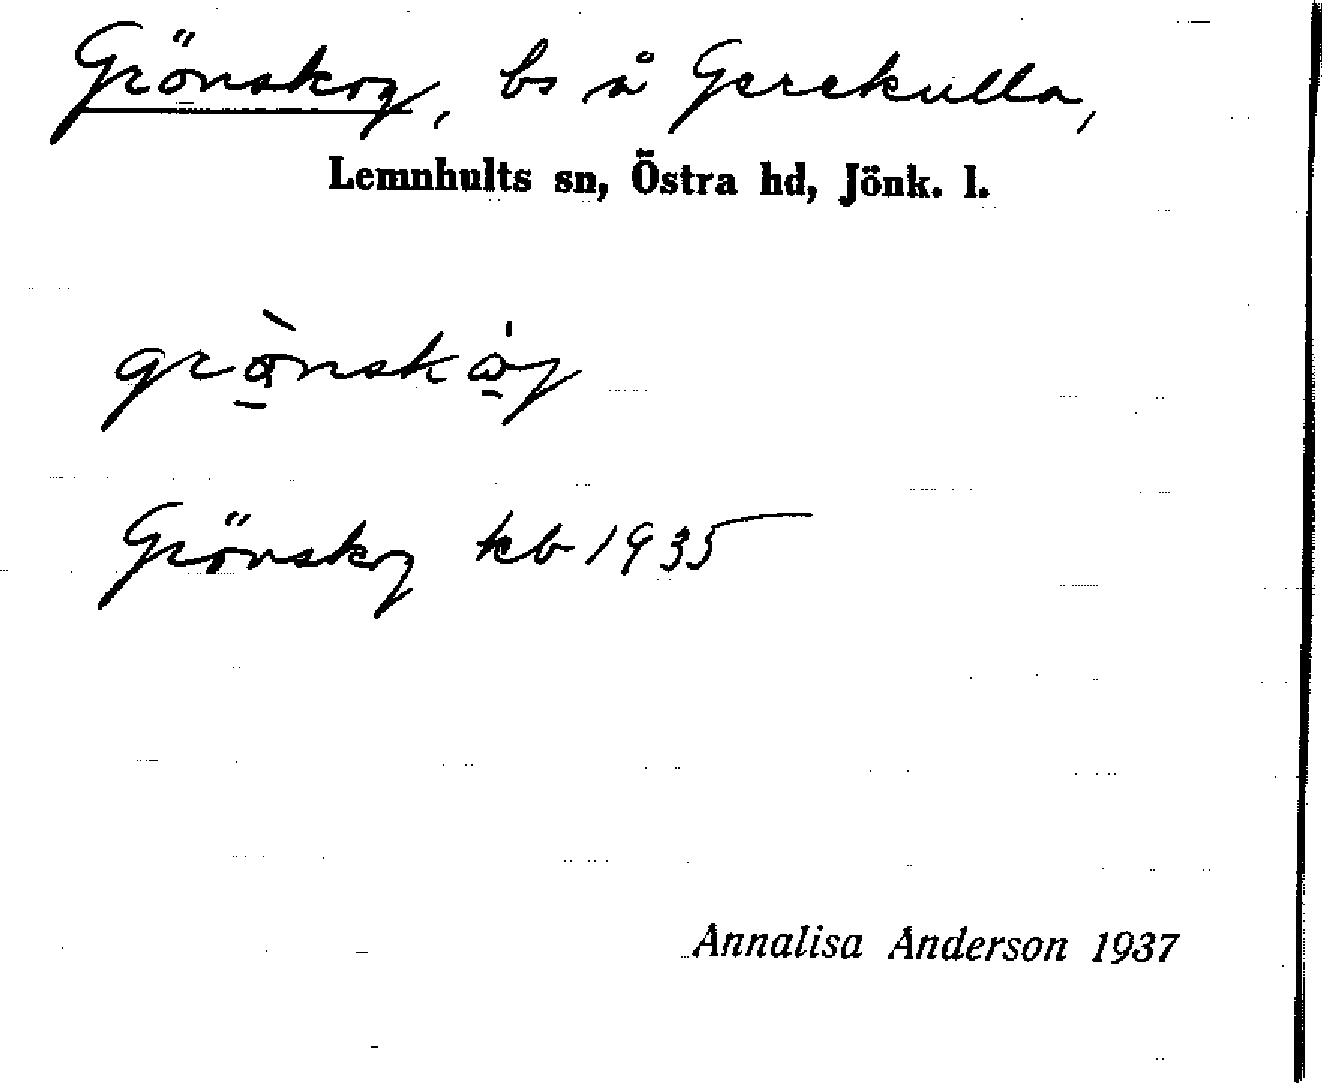 Grönskog, bs å Gerekulla,
Lemnhults sn, Östra hd, Jönk. l.
Grönskog kb 1935
Annalisa Anderson 1937